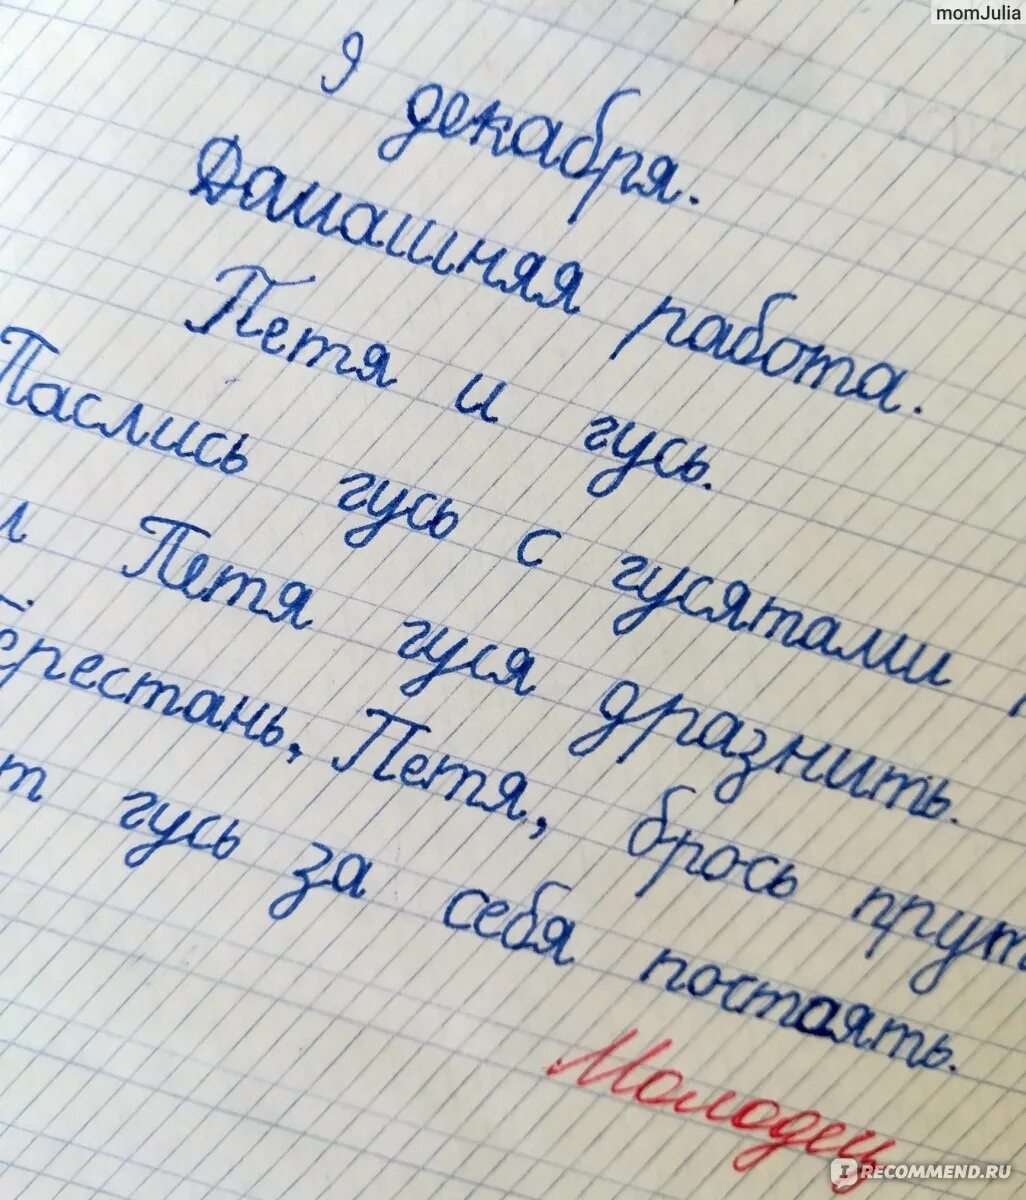 momJulia
9 декабря.
Дамашняя работа.
Петя и гусь.
Паслись гусь с гусятами
л Петя гуся дразнить.
ерестань, Петя, брось прут
т гусь за себя постаять.
Молодец
IRECOMMEND.RU